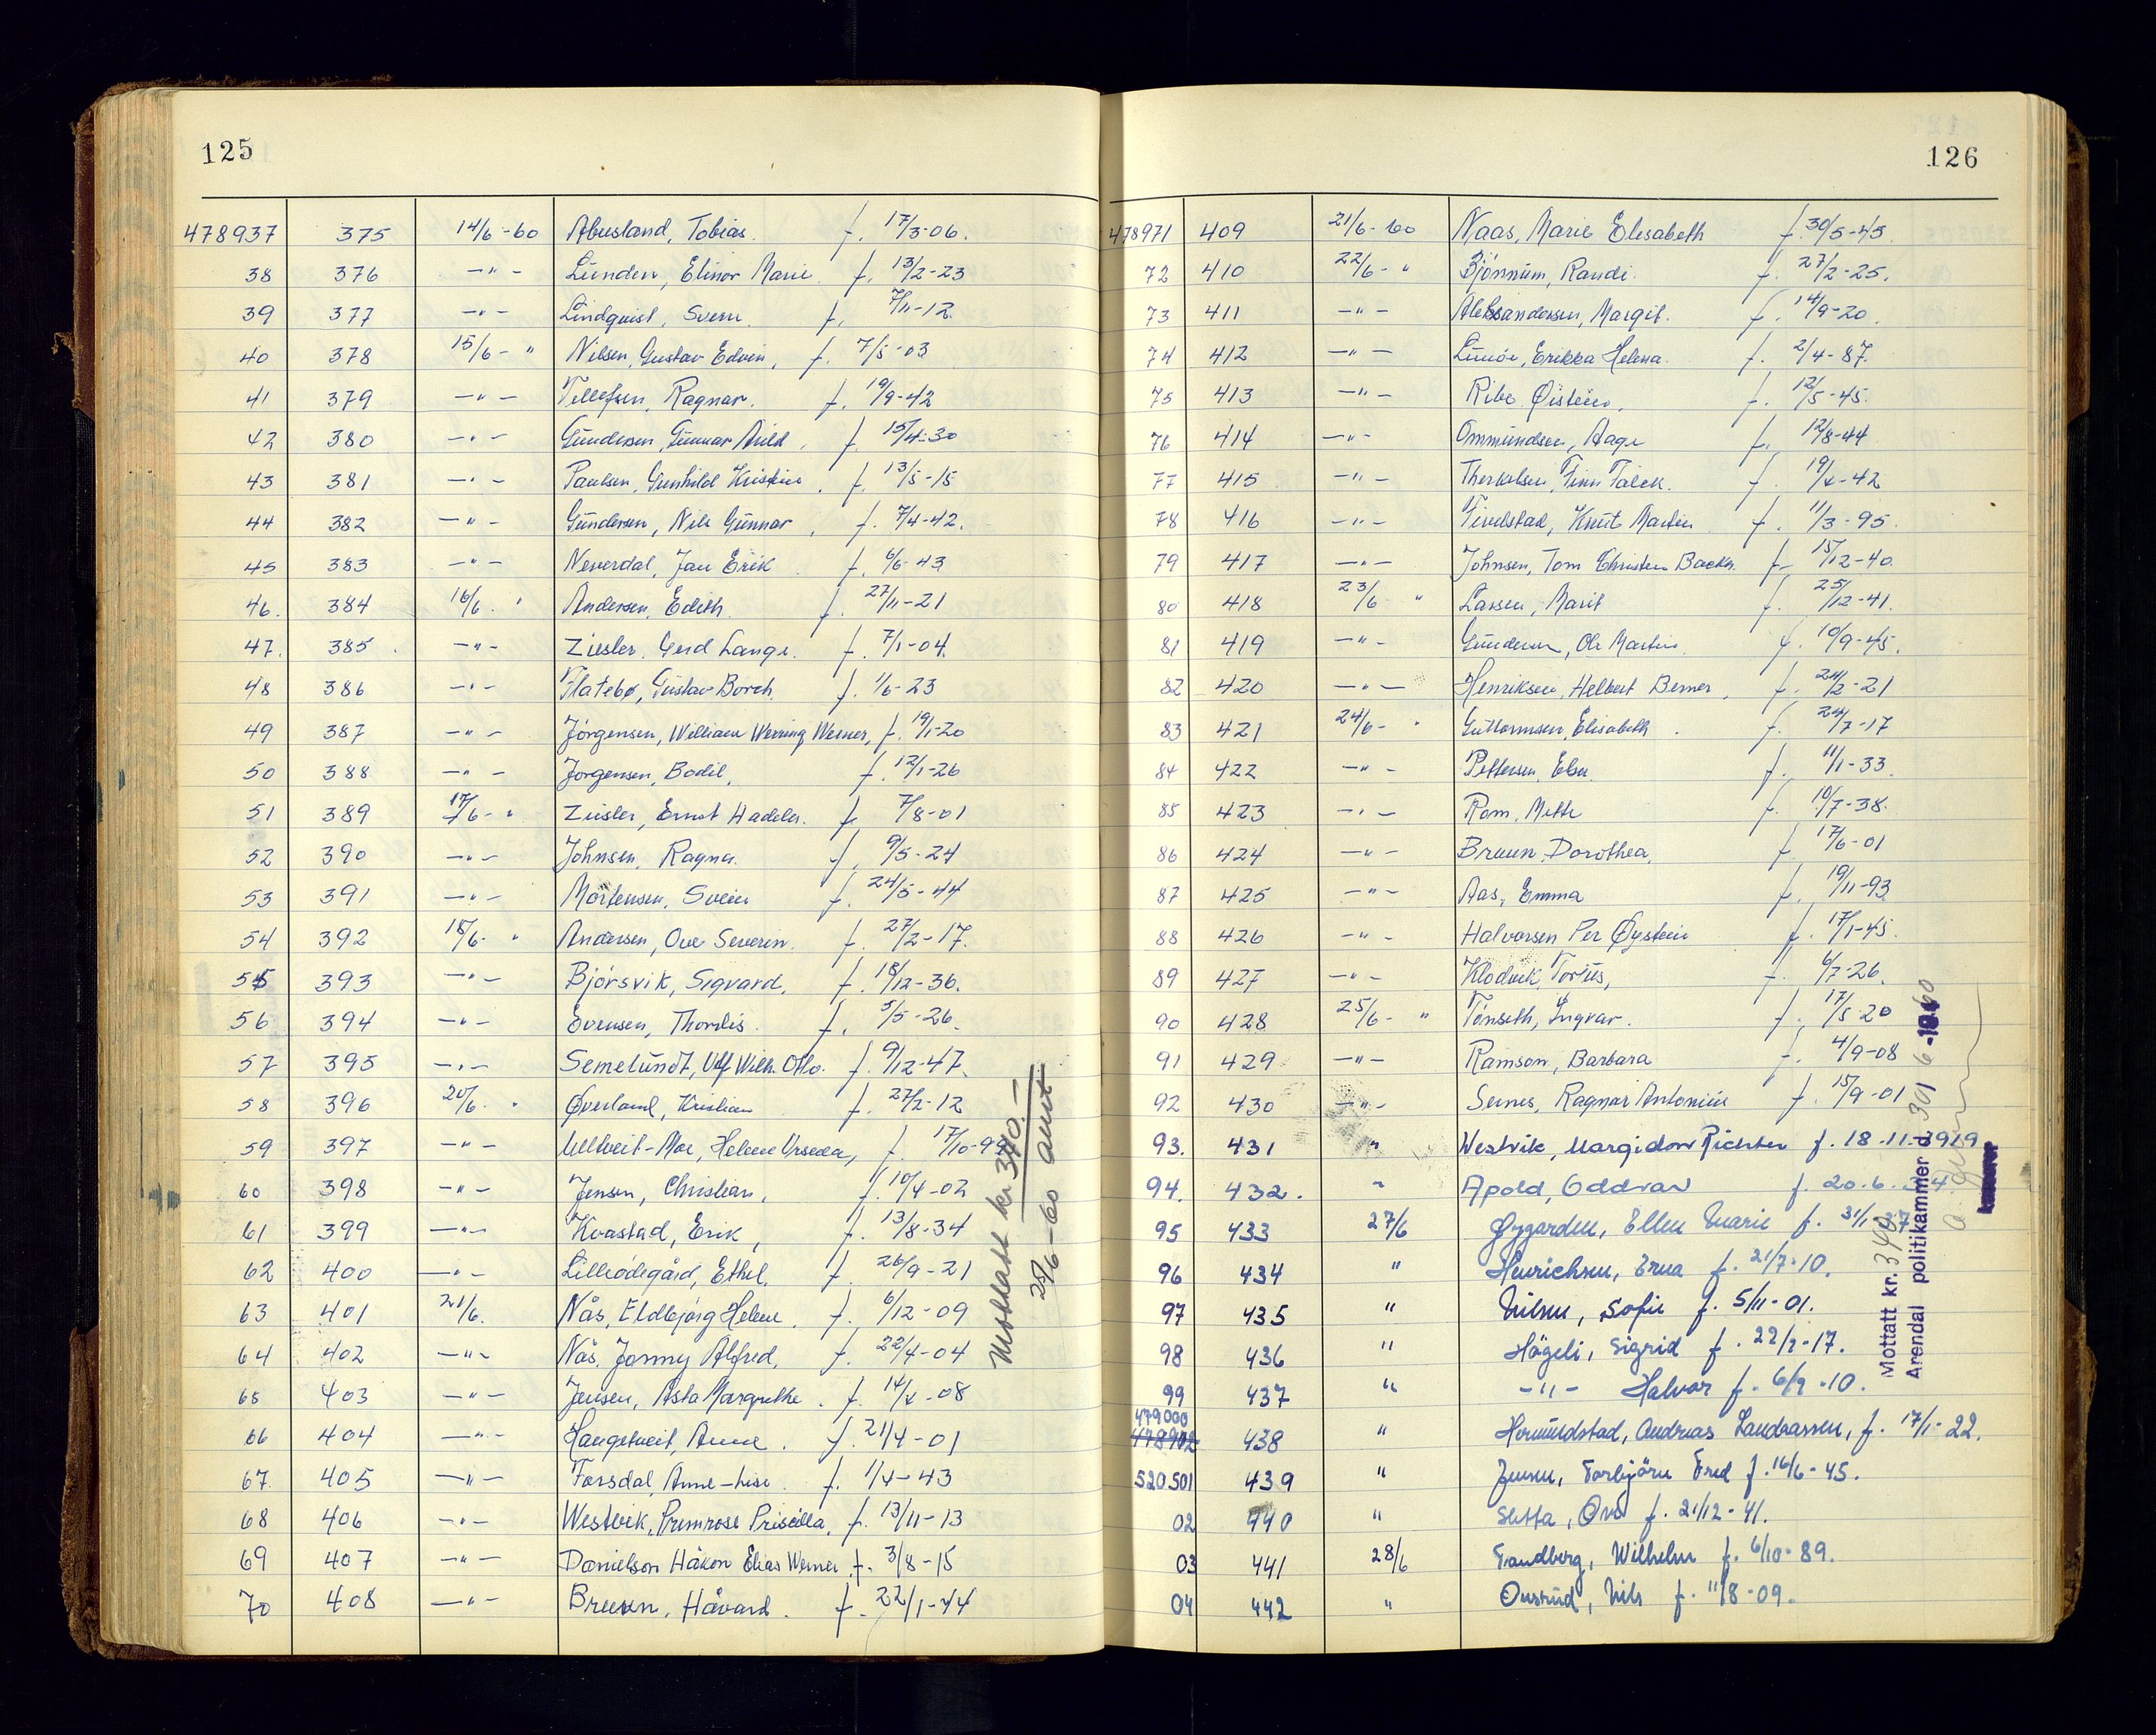 125
478937 375 14/6-60 Abusland, Tobias. f. 17/3-06.
38 376 -"- Lunden, Elinor Marie. f. 13/2-23
39 377 -"- Lindquist, Svenn. f. 7/11-12.
40 378 15/6- " Nilsen, Gustav Edvin, f. 7/5-03
41 379 -"- Tellefsen, Ragnar. f. 19/9-42
42 380 -"- Gundersen, Gunnar Arild, f. 15/4-30
43 381 -"- Paulsen, Gunhild Kristine, f. 13/5-15
44 382 -"- Gundersen, Nils Gunnar, f. 7/4-42.
45 383 -"- Neverdal, Jan Erik f. 6/6-43
46. 384 16/6. " Andersen, Edith. f. 27/11-21
47. 385. -"- Ziesler, Gerd Lange. f. 7/1-04.
48 386 -"- Flatebø, Gustav Borch. f. 1/6-23
49 387 -"- Jörgensen, William Werring Werner, f. 19/1-20
50 388 -"- Jörgensen, Bodil, f. 12/1-26
51 389 17/6- " Ziesler, Ernst Hadeler. f. 7/8-01
52 390 -"- Johnsen, Ragna. f. 9/5-24
53 391 -"- Mortensen, Svein f. 24/5-44
54 392 18/6- " Andersen, Ove Severin. f. 27/2-17.
55 393 -"- Björsvik, Sigvard, f. 18/12-36.
56 394 -"- Evensen, Thordis. f. 5/5-26.
57 395 -"- Semelundt, Ulf Wilh. Otto. f. 9/12-47.
58 396 20/6. " Øverland, Kristian f. 27/2-12
59 397 -"- Ulltveit-Moe, Helene Urseda, f. 17/10-99
60 398 -"- Jensen, Christian, f. 10/4-02
61 399 -"- Kvastad, Erik, f. 13/8-34
62 400 -"- Lilleödegård, Ethel, f. 26/9-21
63 401 21/6. Nås, Eldbjörg Helene. f. 6/12-09
64 402 -"- Nås, Jonny Alfred, f. 22/4-04
65 403 -"- Jensen, Asta Margrethe. f. 14/4-08
66 404 -"- Haugetveit, Anne. f. 21/4-01
67. 405 -"- Forsdal, Anne-Lise. f. 1/4-43
68 406 -"- Westvik, Primrose Priscilla, f. 13/11-13
69 407 -"- Danielson Håkon Elias Werner f. 3/8-15
70 408 -"- Bruun, Håvard. f. 22/1-44
Mottatt kr 340.-
25/6-60
126
478971 409 21/6-60 Naas, Marie Elisabeth f. 30/5-45.
72 410 22/6- " Bjönnum, Randi. f. 27/2-25.
73 411 -"- Aleksandersen, Margit. f. 14/9-20.
74 412 -"- Lunöe, Erikka Helena. f. 2/4-87.
75 413 -"- Ribe Øistein, f. 12/5-45.
76 414 -"- Ommundsen, Aage f. 12/8-44
77 415 -"- Therkelsen, Finn Falck. f. 19/4-42
78 416 -"- Tivelstad, Knut Martin f. 11/3-95.
79 417 -"- Johnsen, Tom Christen Backer. f. 15/12-40.
80 418 23/6 " Larsen, Marit f. 25/12-41.
81 419 -"- Gundersen, Ole Martin. f. 10/9-45.
82 420 -"- Henriksen, Helbert Berner, f. 24/2-21
83 421 24/6- " Guttormsen, Elisabeth. f. 24/7-17
84 422 -"- Pettersen, Elsa. f. 11/1-33.
85 423 -"- Rom, Mette f. 10/7-38.
86 424 -"- Bruun, Dorothea, f. 17/6-01
87 425 -"- Aas, Emma f. 19/11-93.
88 426 -"- Halvorsen Per Øystein f. 17/1-45.
89 427 -"- Klodvik, Torius, f. 6/7-26.
90 428 25/6- " Tönseth, Ingvar. f. 17/5-20
91 429 -"- Ramson, Barbara f. 4/9-08
92 430 -"- Sernes, Ragnar Antonius f. 15/9-01
93. 431 " Westvik, Margido Richter f. 18-11-1919
94. 432. " Apold, Oddvar f. 20.6.
95 433 27/6 Øygarden, Ellen Marie f. 31/1-
96 434 " Henrichsen, Erna f. 21/7-10.
97 435 " Nilsen, Sofie f. 5/11-01.
98 436 " Hägeli, Sigrid f. 22/2-17.
99 437 " -"- Halvor f. 6/9-10.
479000 438 " Hermundstad, Andreas Landaasen, f. 17/1-22.
520.501 439 " Jensen, Torbjörn Fred f. 16/6-45.
02 440 " Sletta, Ove f. 21/12-41.
03 441 28/6 Sandberg, Wilhelm f. 6/10-89.
04 442 " Onsrud, Nils f. 11/8-09.
Mottatt kr. 340
Arendal politikammer d. 30/6-1960